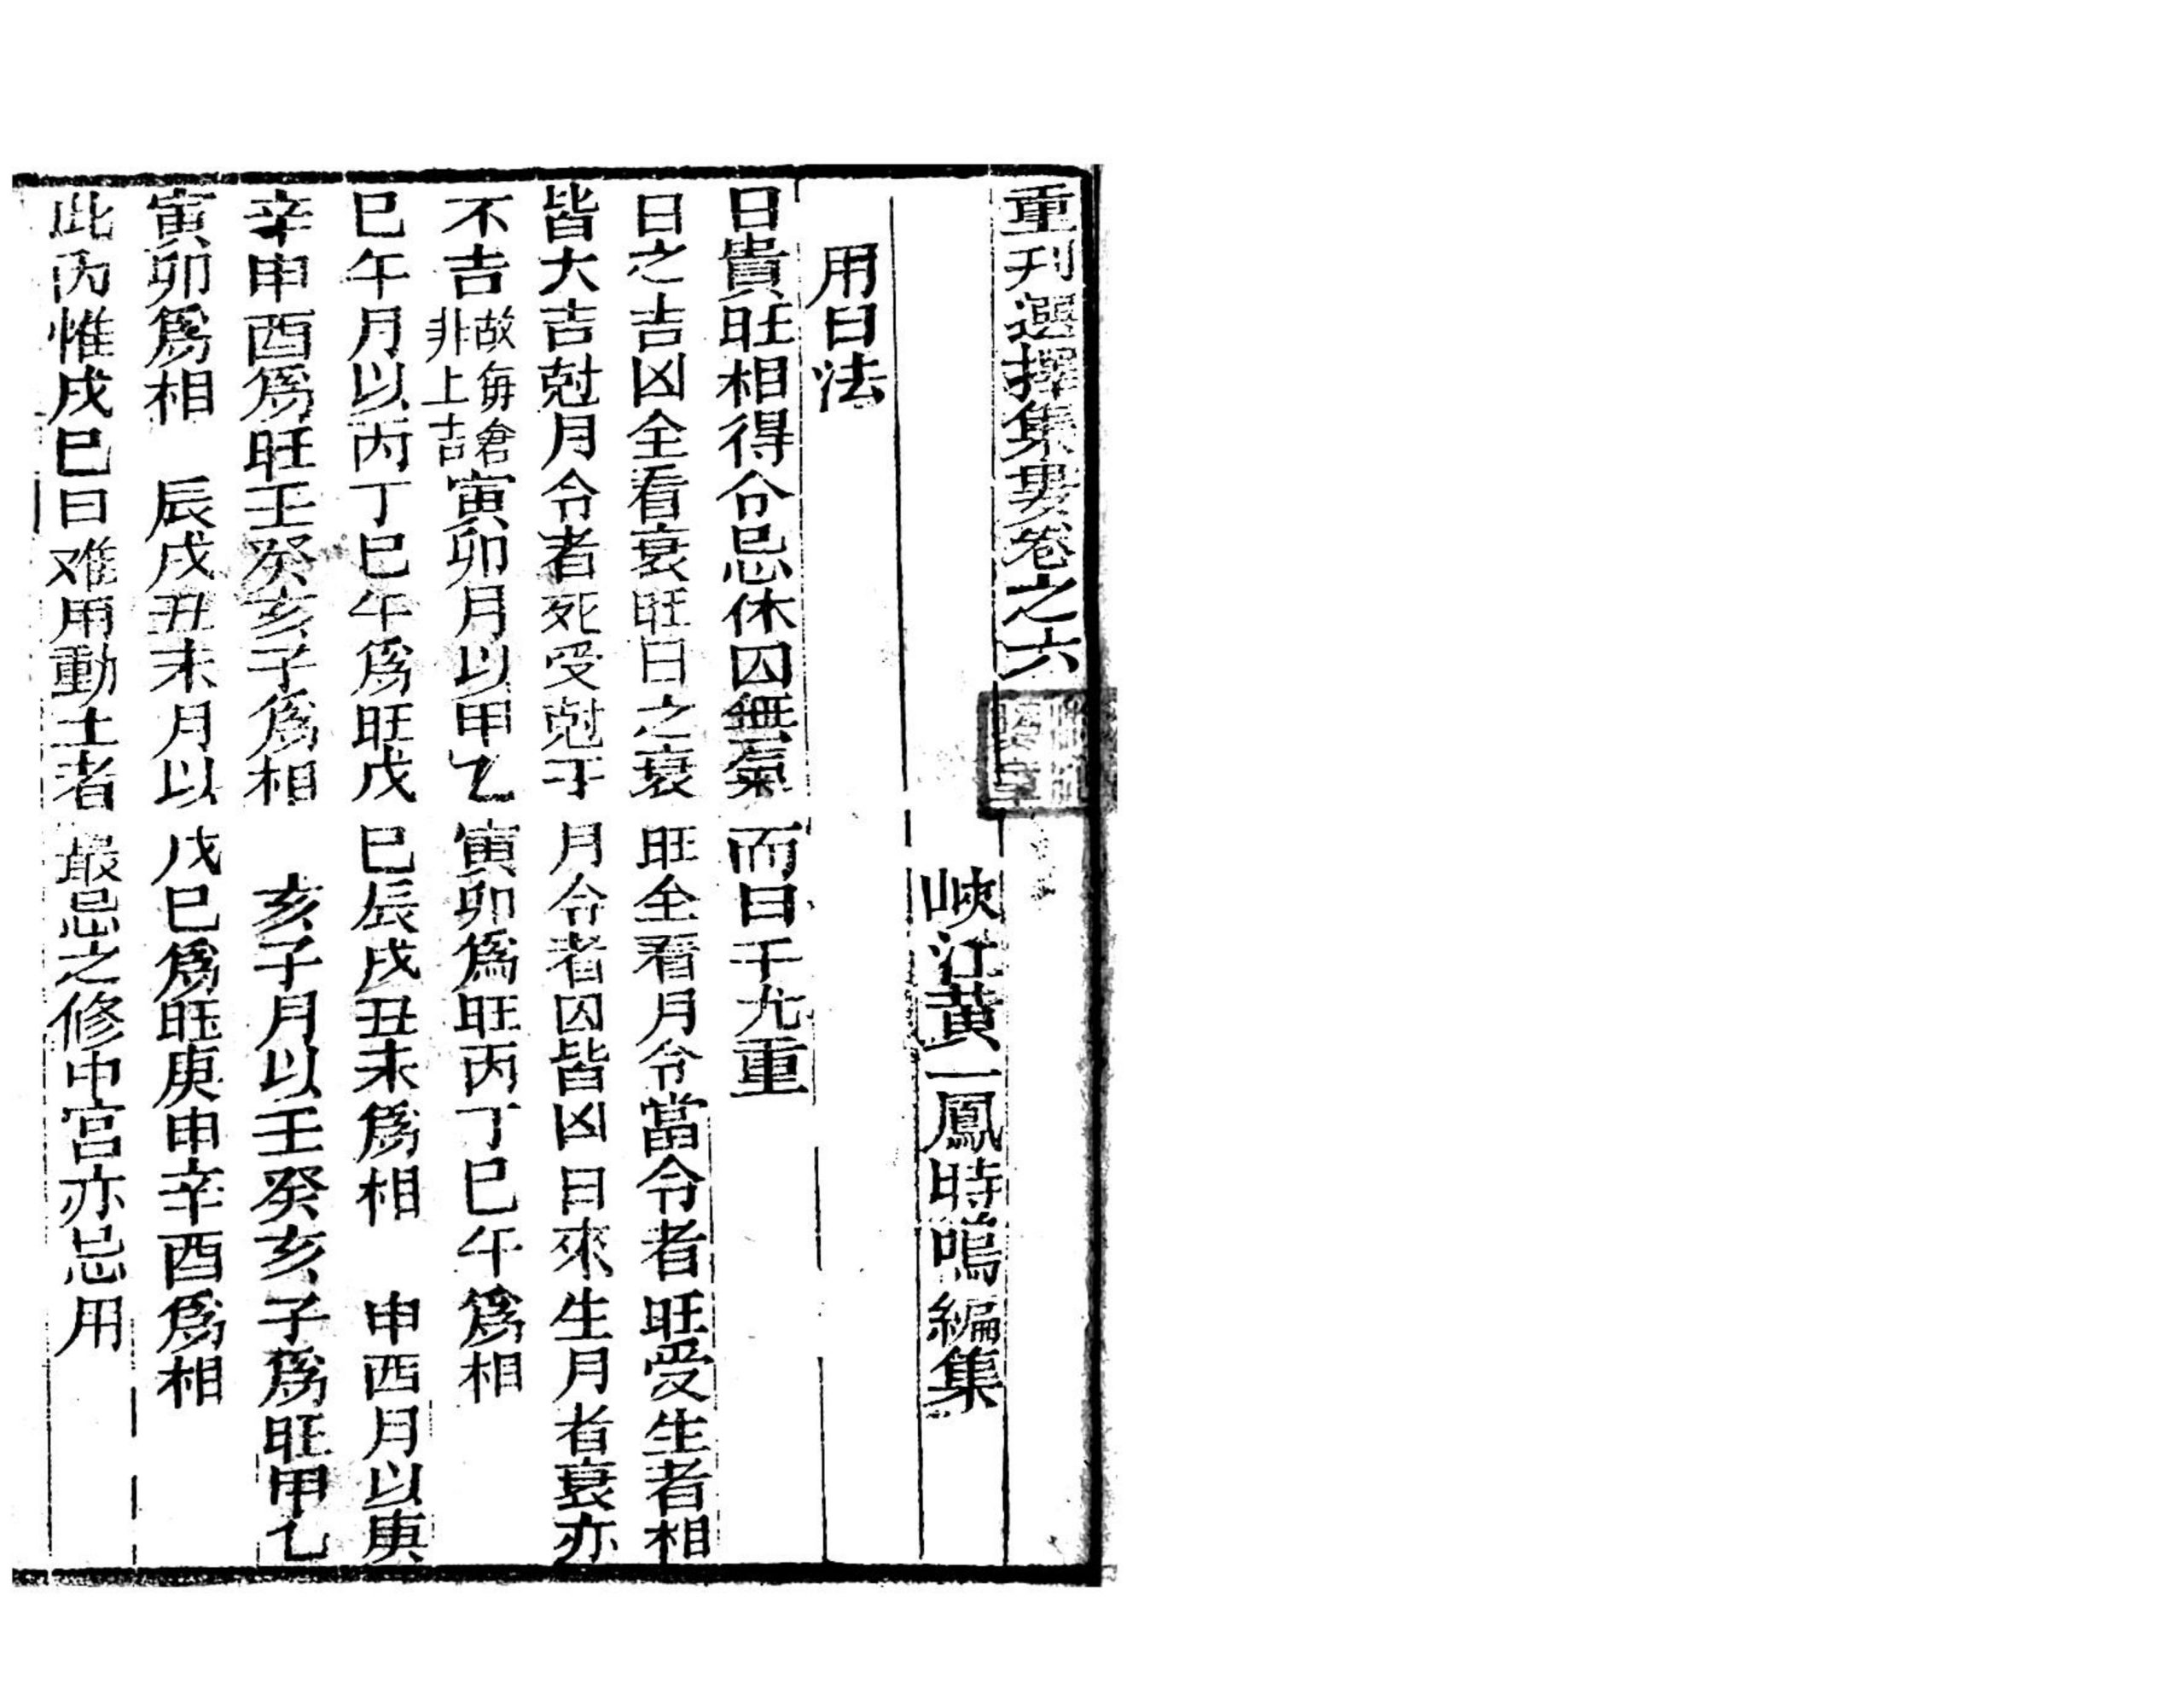 重刊選擇集要卷之六
峽江黄一鳳時鳴編集
用日法
日貴旺相得令忌休囚無氣而日干尤重
日之吉凶全看衰旺日之衰旺全看月令當令者旺受生者相
皆大吉尅月令者死受尅于月令者囚皆凶日來生月者衰亦
不吉故毎
非上吉寅卯月以甲乙寅卯爲旺丙丁巳午爲相
巳午月以丙丁巳午爲旺戊巳辰戌丑未爲相　申酉月以庚
辛申酉爲旺壬癸亥子爲相　亥子月以壬癸亥子爲旺甲乙
寅卯爲相　辰戌丑未月以戊巳爲旺庚申辛酉爲相
此內惟戌巳日难用動土者最忌之修中宫亦忌用